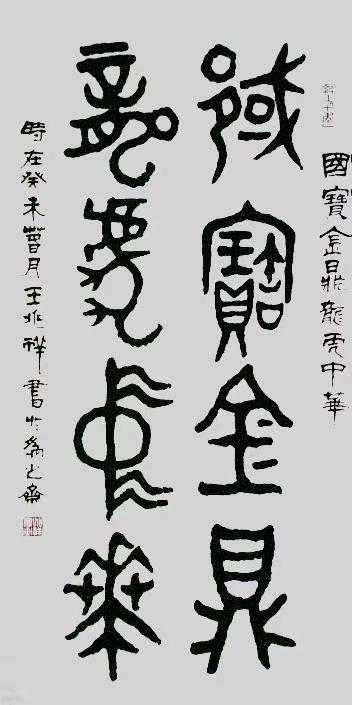 國寶金鼎龍虎中華
國寶金鼎
龍虎中華
時在癸未月王兆祥書於之齋